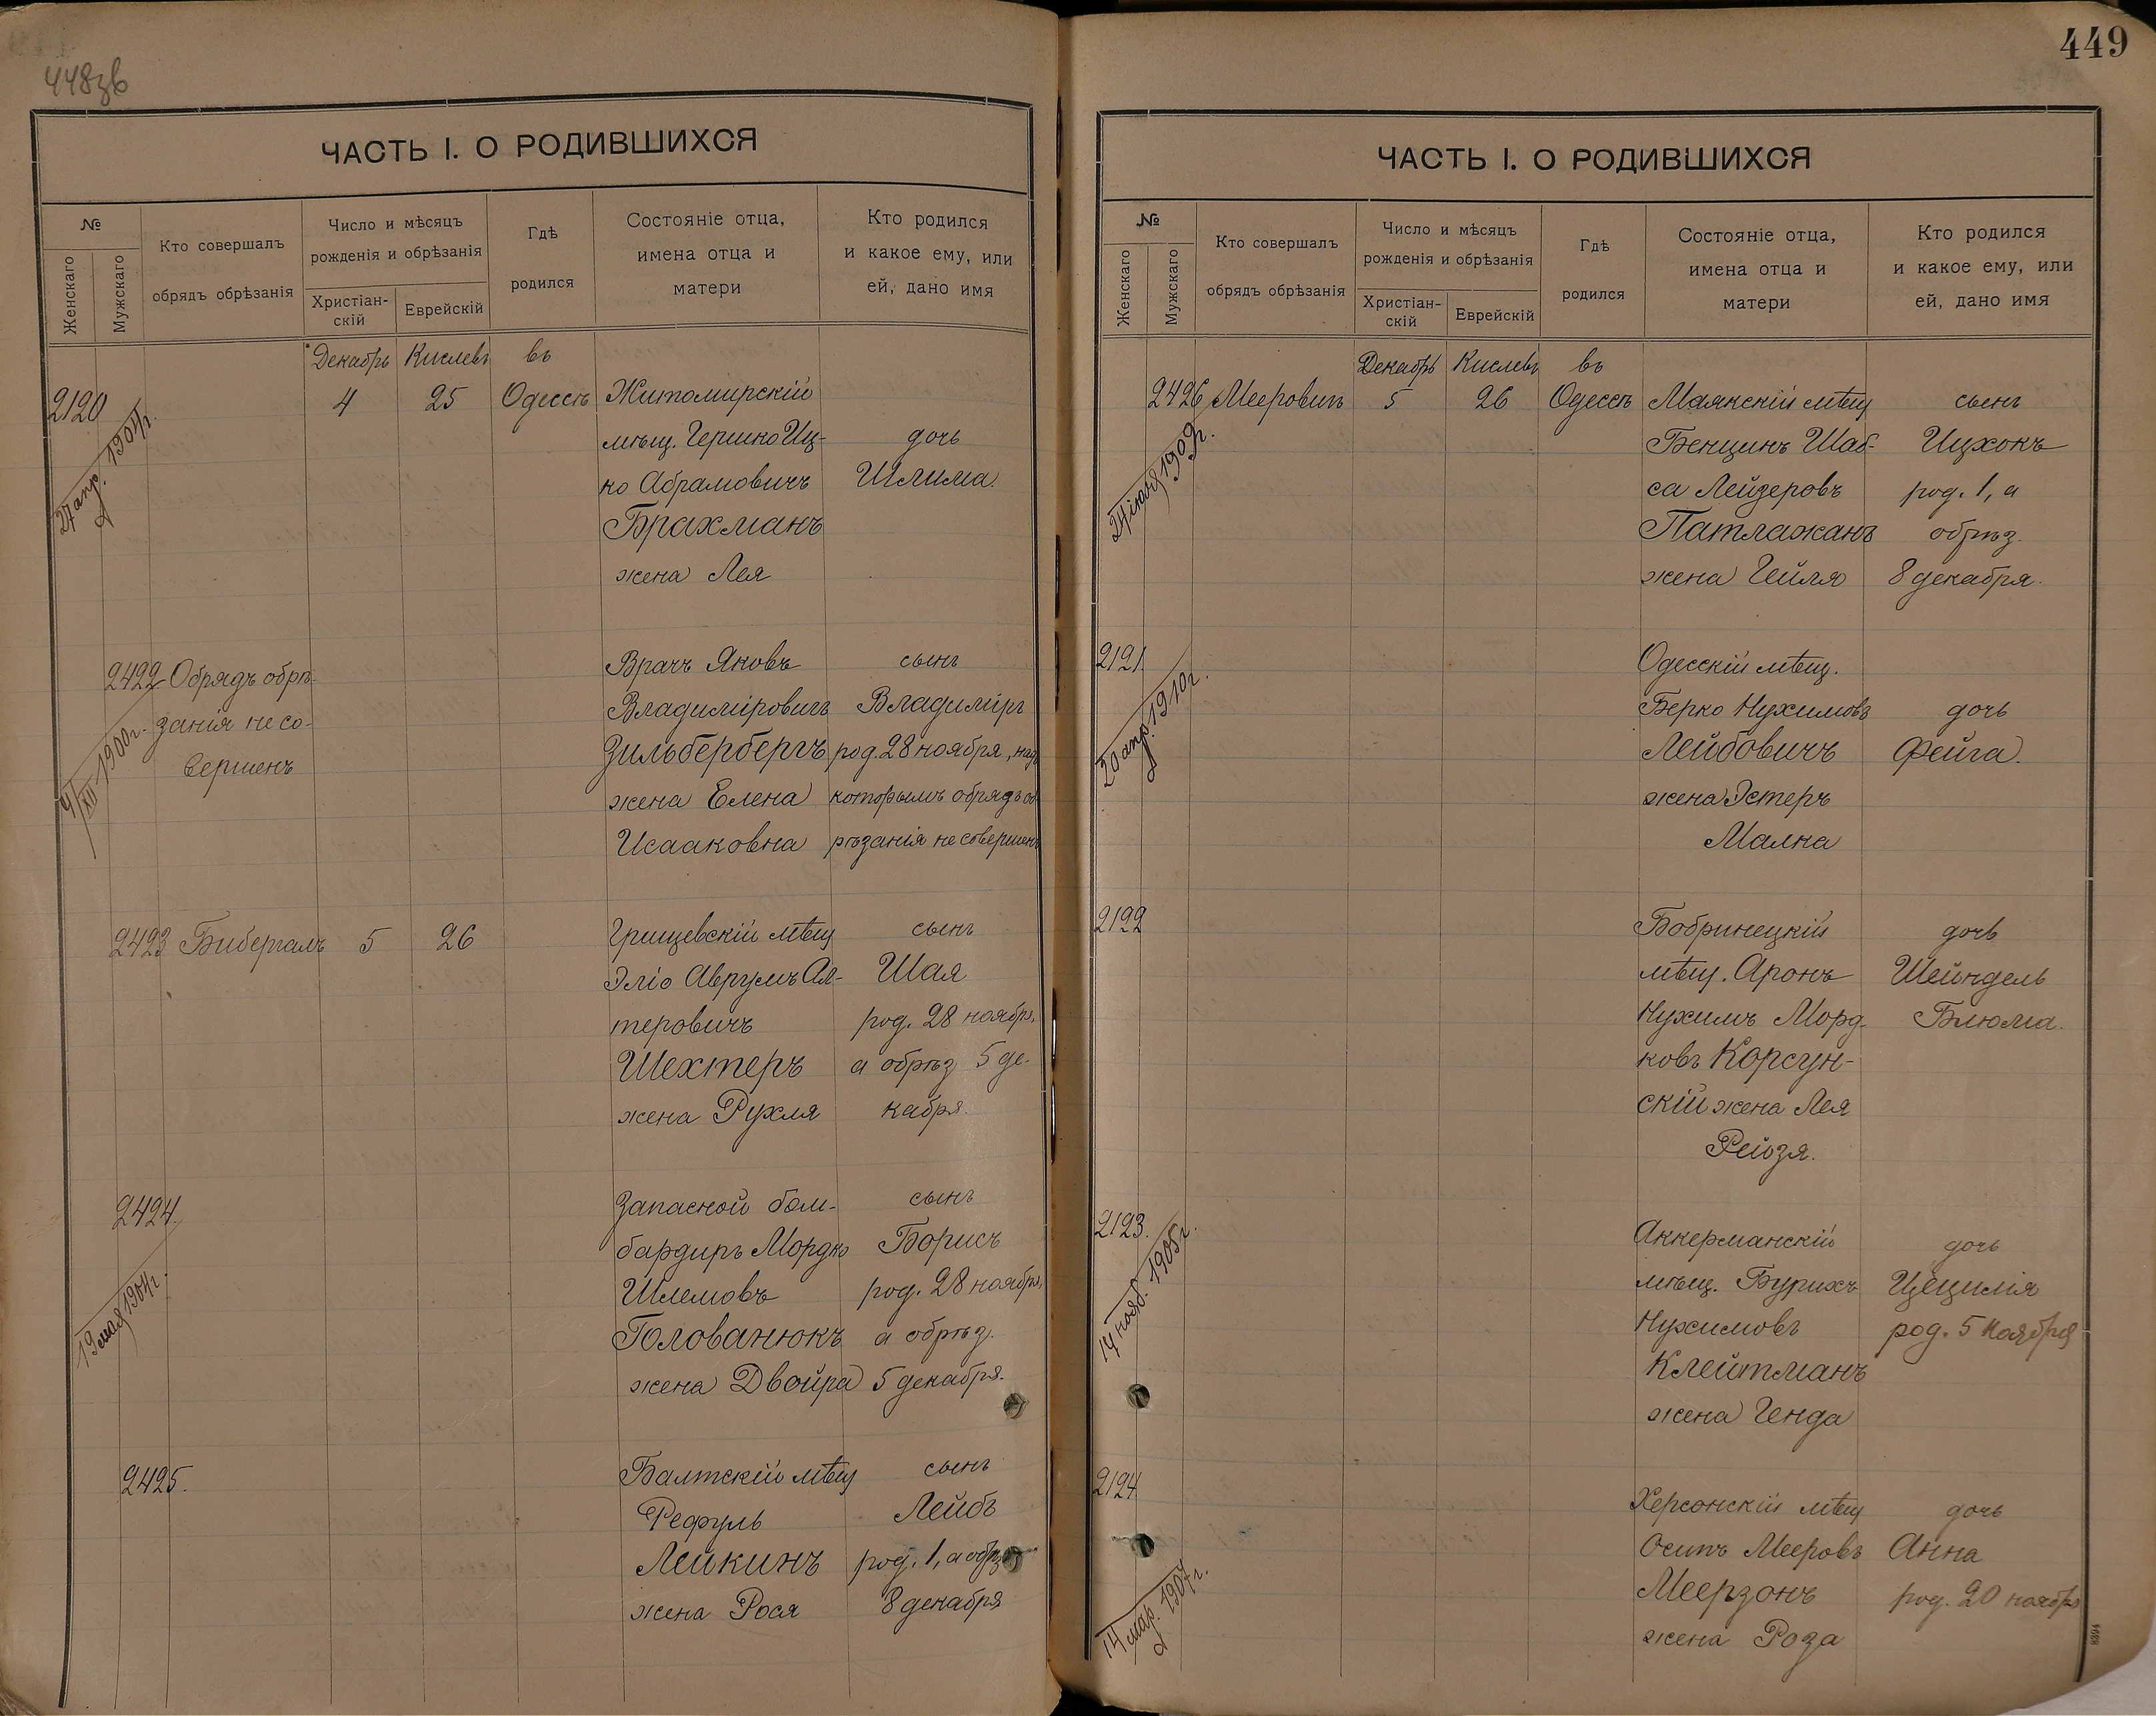 448зв
ЧАСТЬ I. О РОДИВШИХСЯ
№
Женскаго
Мужскаго
Кто совершалъ
обрядъ обрѣзанія
Число и мѣсяцъ
рожденія и обрѣзанія
Христіан-
скій
Еврейскій
Гдѣ
родился
Состояніе отца,
имена отца и
матери
Кто родился
и какое ему, или
ей, дано имя
Декабрь Кислевъ въ
2120 4 25 Одессѣ Житомирскій
мѣщ. Гершко Иц- дочь
ко Абрамовичъ Шлима.
Брахманъ
жена Лея
27 апр. 1904 г.
Врачъ Яковъ сынъ
2422 Обрядъ обрѣ-
Владиміровичъ Владиміръ
занія не со-
Зильбербергъ род. 28 ноября, надъ
вершенъ
жена Елена которымъ обрядъ об
Исааковна рѣзанія не совершенъ
4/XII 1900 г.
2423 Бибергалъ 5 26 Грищевскій мѣщ сынъ
Эліо Аврумъ Ал- Шая
теровичъ род. 28 ноября,
Шехтеръ а обрѣз 5 де-
жена Рухля кабря.
2424. Запасной бом- сынъ
бардиръ Мордко Борисъ
Шлемовъ род. 28 ноября,
Голованюкъ а обрѣз.
жена Двойра 5 декабря.
19 мая 1904 г.
2425. Балтскій мѣщ сынъ
Рефуль Лейбъ
Лейкинъ род. 1, а обрѣз
жена Рося 8 декабря
449
ЧАСТЬ I. О РОДИВШИХСЯ
№
Женскаго
Мужскаго
Кто совершалъ
обрядъ обрѣзанія
Число и мѣсяцъ
рожденія и обрѣзанія
Христіан-
скій
Еврейскій
Гдѣ
родился
Состояніе отца,
имена отца и
матери
Кто родился
и какое ему, или
ей, дано имя
Декабрь Кислевъ въ
2426 Мееровичъ 5 26 Одессѣ Маякскій мѣщ сынъ
Бенцинъ Шаб- Ицхокъ
са Лейзеровъ род. 1, а
Патлажанъ обрѣз.
жена Гейля 8 декабря.
1909 г.
2121 Одесскій мѣщ.
Берко Нухимовъ дочь
Лейбовичъ Фейга.
жена Эстеръ
Малка
20 апр. 1910 г.
2122 Бобринецкій дочь
мѣщ. Аронъ Шейндель
Нухимъ Морд- Блюма.
ковъ Корсун-
скій жена Лея
Рейзя.
2123. Аккерманскій дочь
мѣщ. Бурихъ Цецилія
Нухимовъ род. 5 ноября
Клейтманъ
жена Генда
14 нояб. 1905 г.
2124 Херсонскій мѣщ дочь
Осипъ Мееровъ Анна
Меерзонъ род. 20 ноября
жена Роза
14 мар. 1907 г.
8394